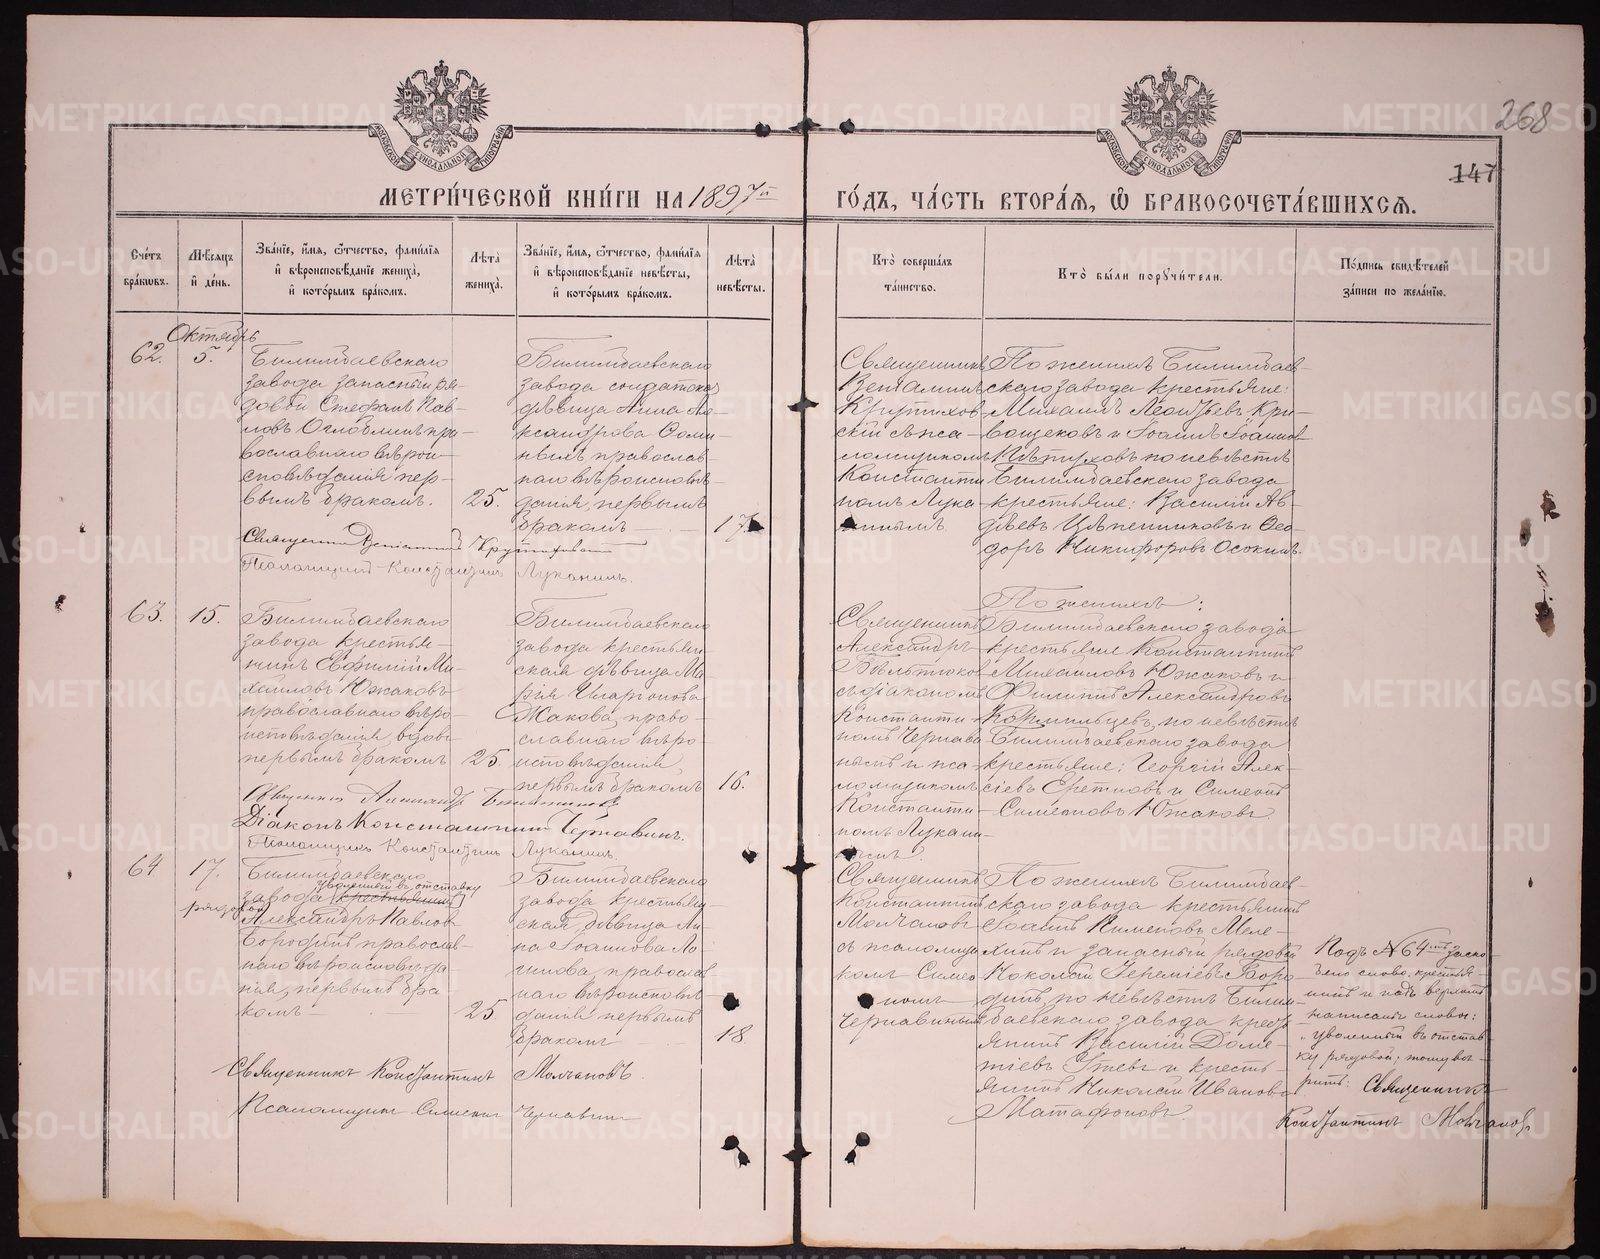 268
147
МЕТРИ́ЧЕСКОЙ КНИ́ГИ НА 1897й ГО́ДЪ, ЧА́СТЬ ВТОРА́Я, Ѽ БРАКОСОЧЕТА́ВШИХСЯ.
МОСКОВСКОЙ СѴНОДАЛЬНОЙ ТИПОГРАФІИ
МОСКОВСКОЙ СѴНОДАЛЬНОЙ ТИПОГРАФІИ
Сче́тъ
бра́ковъ.
Мѣ́сяцъ
и҆ де́нь.
Зва́нїе, и҆́мя, ѻ҆́тчество, фами́лїя
и҆ вѣроисповѣ́данїе жениха̀,
и҆ кото́рымъ бра́комъ.
Лѣ́та
жениха̀.
Зва́нїе, и҆́мя, ѻ҆́тчество, фами́лїя
и҆ вѣроисповѣ́данїе невѣ́сты,
и҆ кото́рымъ бра́комъ.
Лѣ́та
невѣ́сты.
Кто̀ соверша́лъ
та́инство.
Кто̀ бы́ли порꙋчи́тели.
По́дпись свидѣ́телей
за́писи по жела́нїю.
Октябрь
62.
5.
Билимбаевскаго
завода запасный ря-
довой Стефанъ Пав-
ловъ Оглоблинъ пра-
вославнаго вѣрои-
сповѣданія пер-
вымъ бракомъ.
25.
Билимбаевскаго
завода солдатская
дѣвица Анна Але-
ксандрова Ѳоми-
ныхъ православ-
наго вѣроисповѣ-
данія, первымъ
бракомъ
17.
Священникъ
Веніаминъ
Крутихов-
скій съ пса-
ломщикомъ
Константи-
номъ Лука-
нинымъ
По женихѣ Билимбаев-
скаго завода крестьяне:
Михаилъ Леонтьевъ Кри-
вощековъ и Іоаннъ Іоаннов
Пѣтуховъ по невѣстѣ
Билимбаевскаго завода
крестьяне: Василій Ав-
дѣевъ Цѣпенниковъ и Ѳео-
доръ Никифоровъ Осокинъ.
Священникъ Веніаминъ Крутиховскій
Псаломщикъ Константинъ Луканинъ.
63.
15.
Билимбаевскаго
завода крестья-
нинъ Евфимій Ми-
хайловъ Южаковъ
православнаго вѣро-
исповѣданія, вдовъ
первымъ бракомъ
25.
Билимбаевскаго
завода крестьян-
ская дѣвица Ма-
рія Иларіонова
Жакова, право-
славнаго вѣро-
исповѣданія,
первымъ бракомъ
16.
Священникъ
Александръ
Бѣльтюков
съ діакономъ
Константи-
номъ Чернави-
нымъ и пса-
ломщикомъ
Константи-
номъ Лукани-
нымъ.
По женихѣ:
Билимбаевскаго завода
крестьяне Константинъ
Михаиловъ Южаковъ и
Филиппъ Александровъ
по невѣстѣ
Билимбаевскаго завода
крестьяне: Георгій Алек-
сіевъ Еретновъ и Симеонъ
Симеоновъ Южаковъ
Священникъ Александръ
Діаконъ Константинъ Чернавинъ.
Псаломщикъ Константинъ Луканинъ.
64
17.
Билимбаевскаго
уволенный въ отставку
завода [крестьянинъ]
рядовой
Александръ Павлов
Бородинъ православ-
наго вѣроисповѣда-
нія, первымъ бра-
комъ
25
Билимбаевскаго
завода крестьян-
ская дѣвица Ан-
на Іоаннова Ло-
гинова, православ-
наго вѣроисповѣ-
данія первымъ
бракомъ
18
Священникъ
Константинъ
Молчановъ
съ псаломщи-
комъ Симео-
номъ
Чернавинымъ
По женихѣ Билимбаев-
скаго завода крестьянинъ
Іоаннъ Пименовъ Меле-
хинъ и запасный рядовой
Николай Іереміевъ Боро-
динъ, по невѣстѣ Билим-
баевскаго завода кресть-
янинъ Василій Доме-
тіевъ и кресть-
янинъ Николай Ивановъ
Матафоновъ
Подъ №64мъ заскоб-
лено слово: крестья-
нинъ и надъ верхомъ
написаны слова:
"уволенный въ отстав-
ку рядовой", тому вѣ-
рить: Священникъ
Константинъ Молчановъ
Священникъ Константинъ Молчановъ.
Псаломщикъ Симеонъ Чернавинъ
METRIKI.GASO-URAL.RU